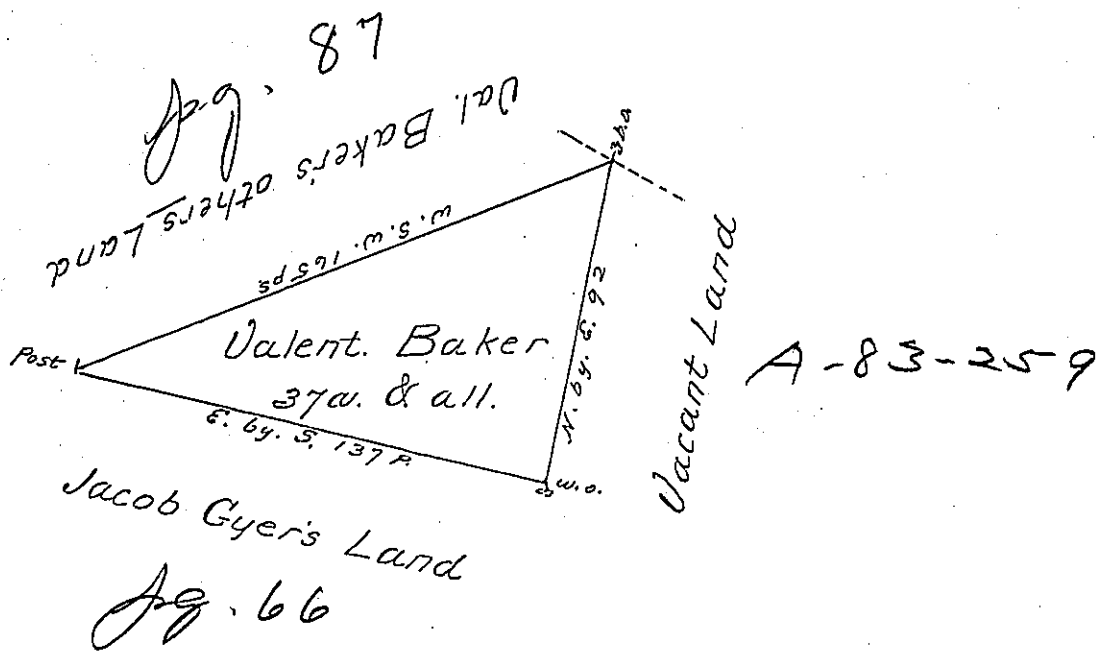 pg. 87
Val. Baker's others Land
W. S. W. 165 ps
Post
Valent. Baker
37a. & all.
N. by. E. 92
Vacant Land
A-83-259
E. by. S. 137 P.
w.o.
Jacob Gyer's Land
pg. 66